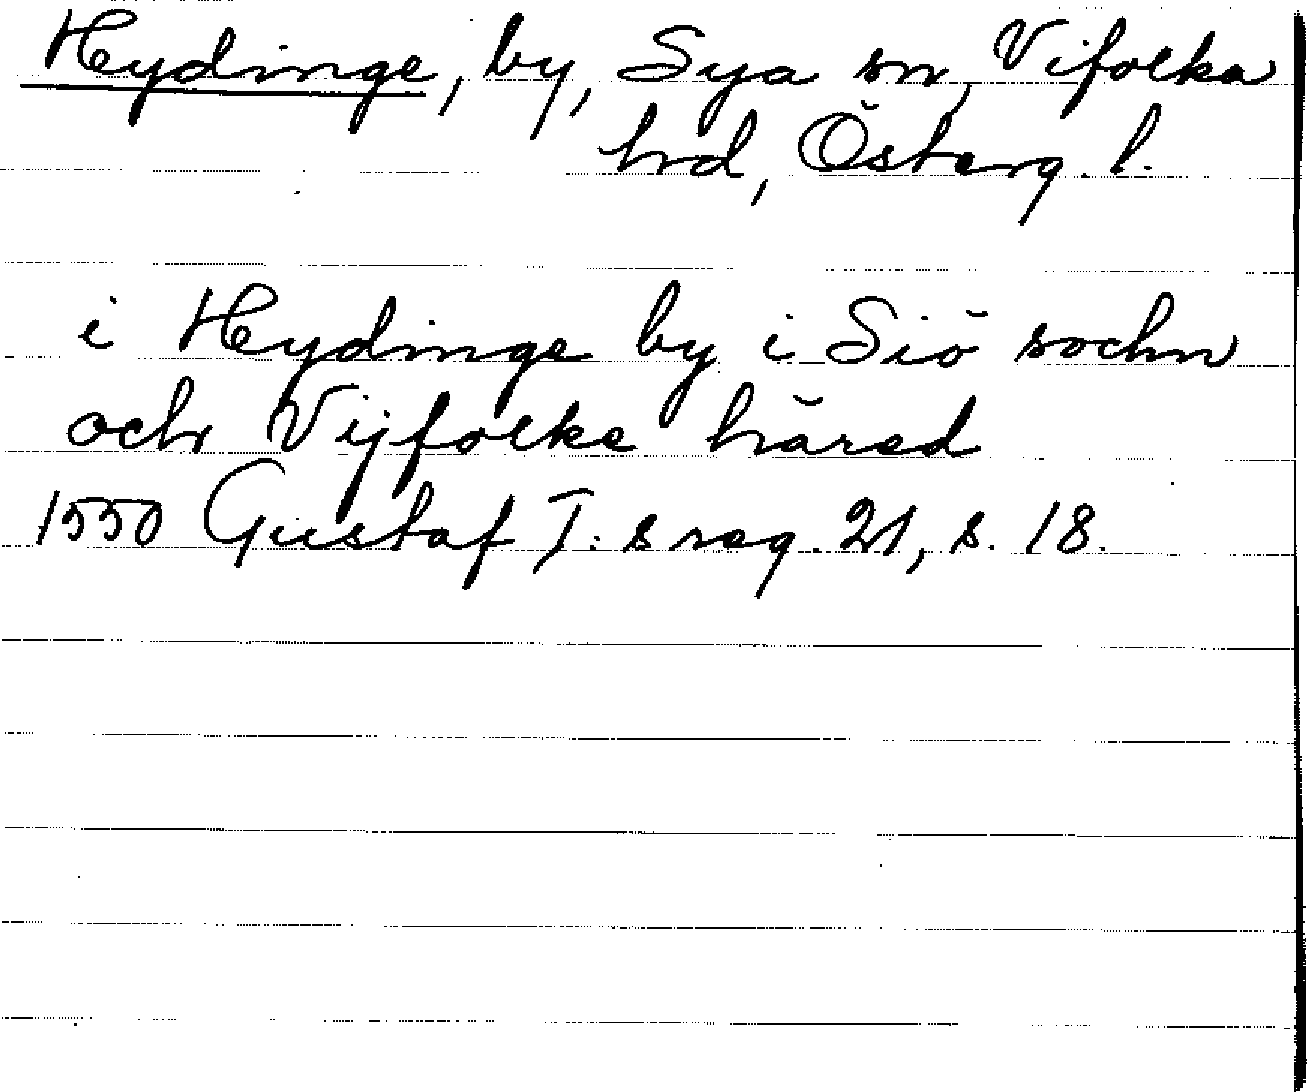 Hydinge, by, Sya sn, Vifolka
hrd, Österg. l.
i Hydinge by i Siö sochn
och Vijfolke härad
1550 Gustaf I:s reg. 21, s. 18.